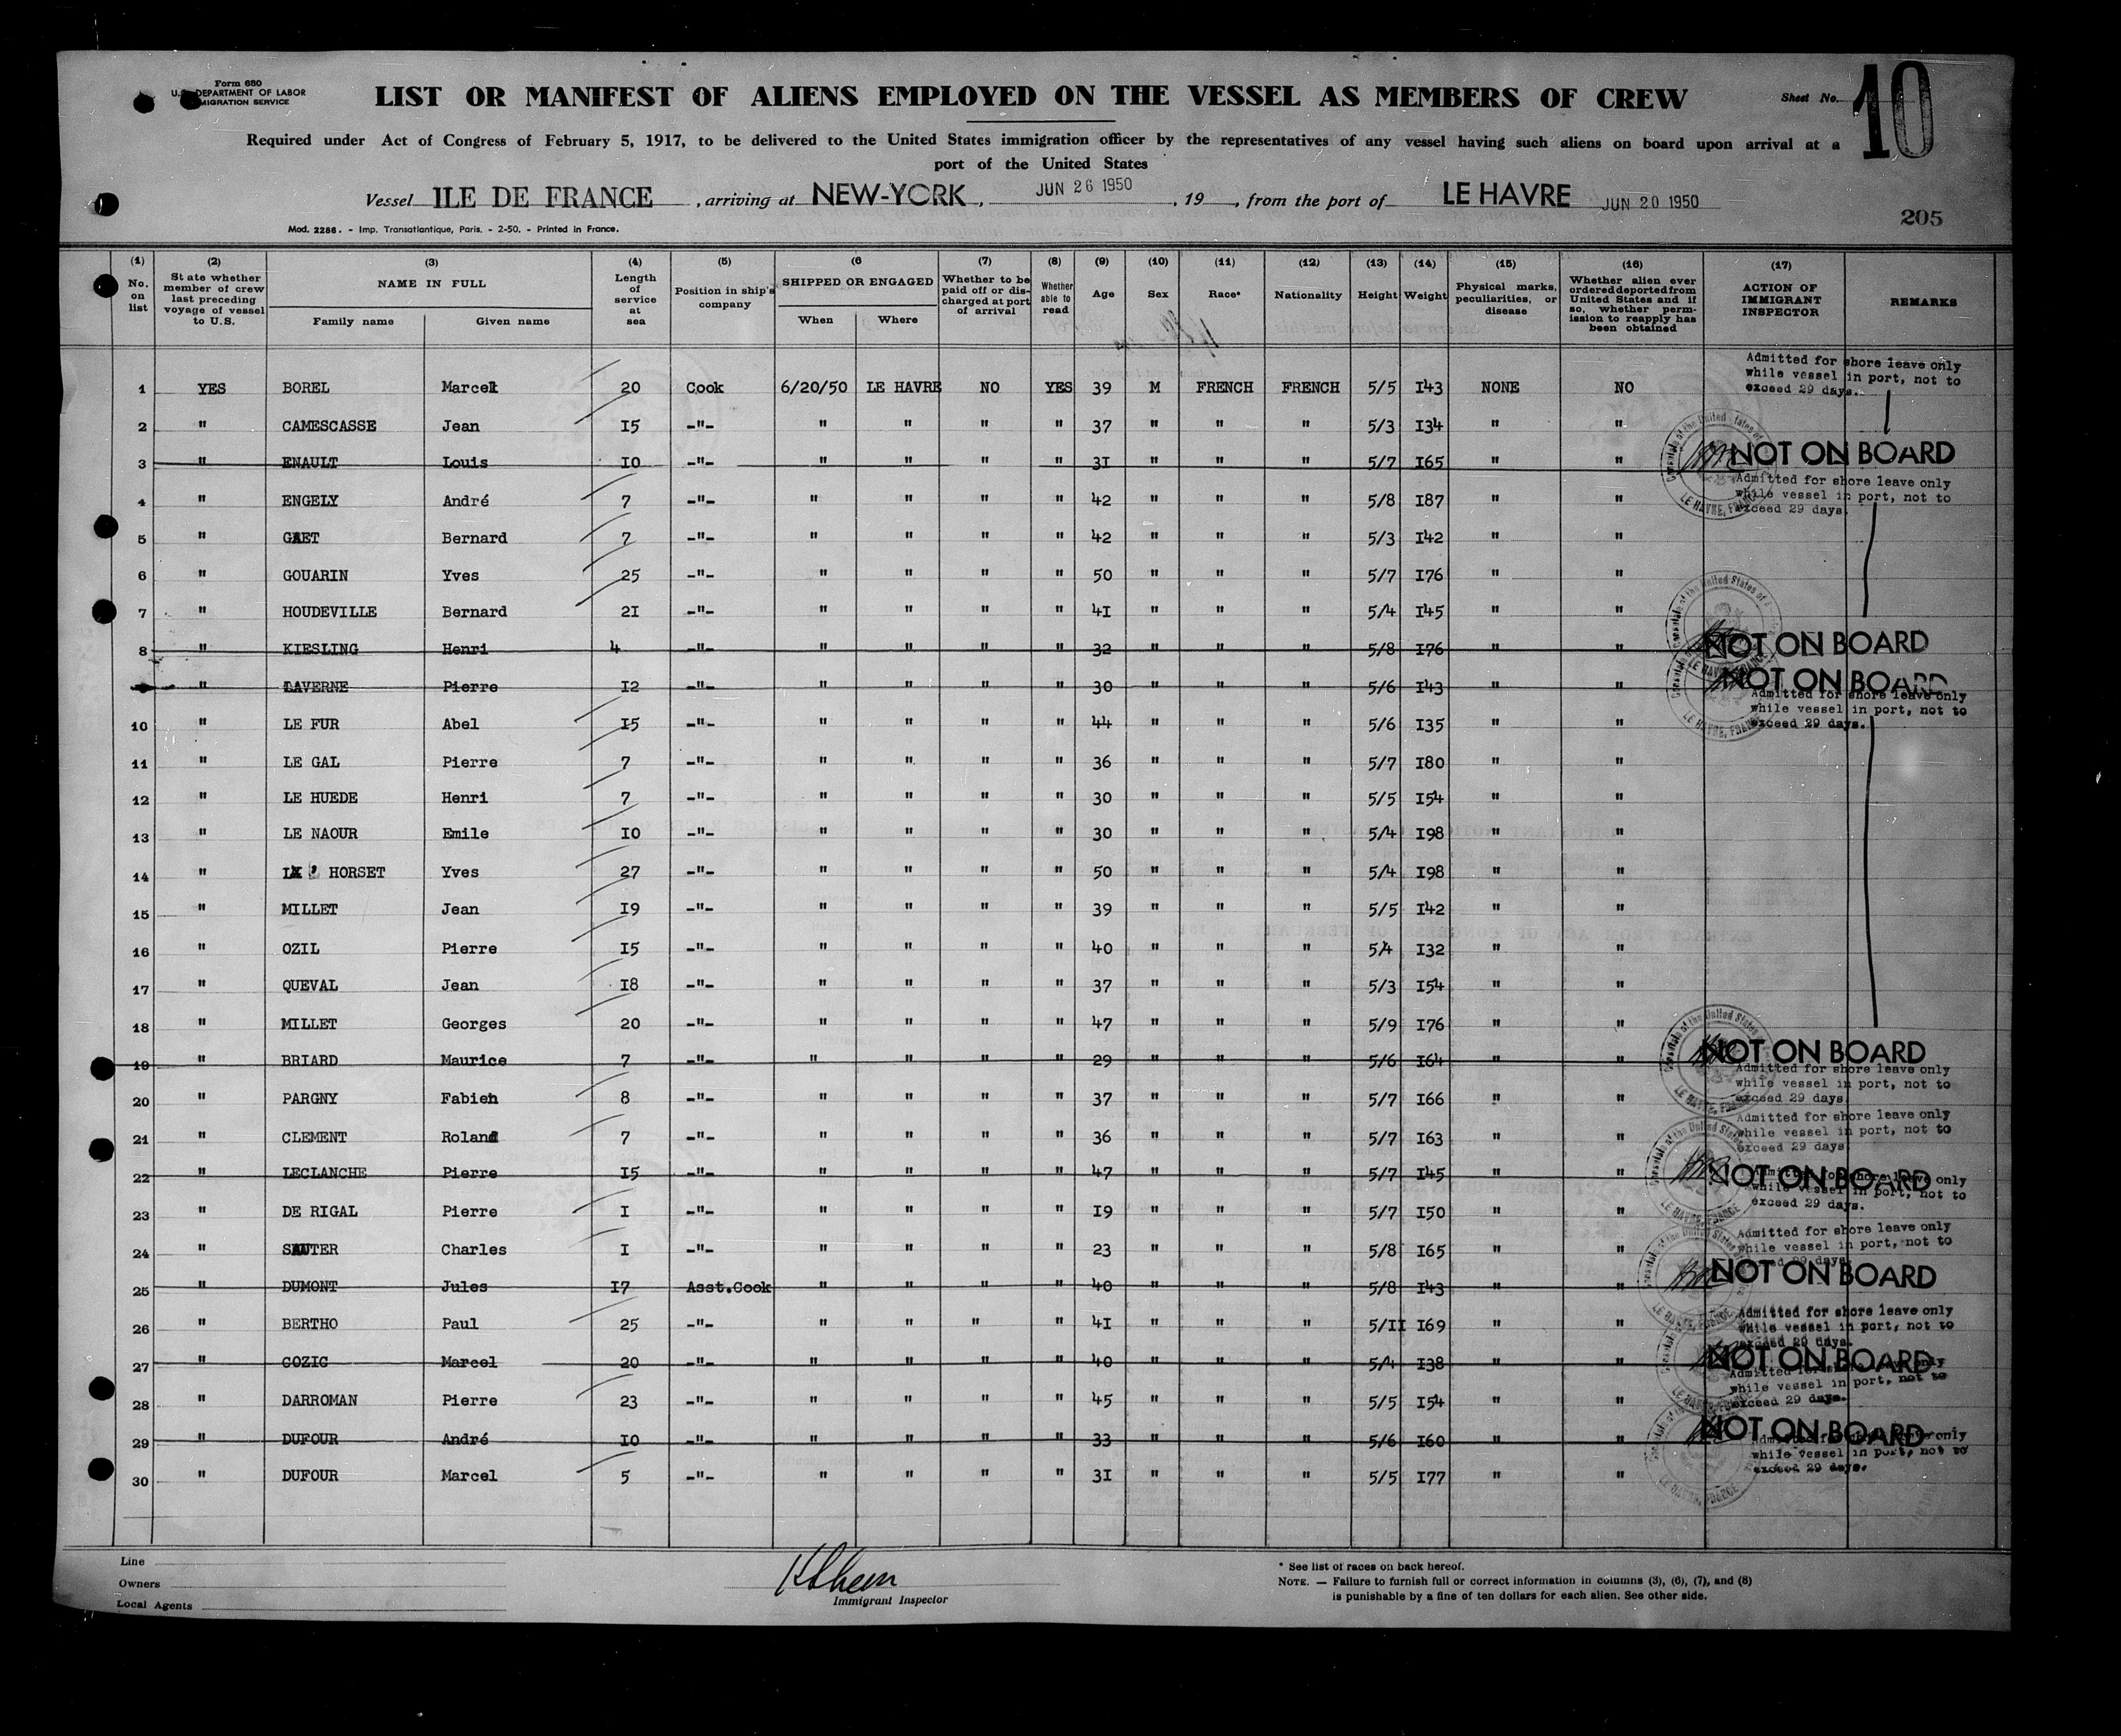 Form 680
U.S. DEPARTMENT OF LABOR
IMMIGRATION SERVICE
LIST OR MANIFEST OF ALIENS EMPLOYED ON THE VESSEL AS MEMBERS OF CREW
Sheet No. 10
Required under Act of Congress of February 5, 1917, to be delivered to the United States immigration officer by the representatives of any vessel having such aliens on board upon arrival at a
port of the United States
Vessel ILE DE FRANCE, arriving at NEW-YORK, JUN 26 1950, 19 , from the port of LE HAVRE JUN 20 1950
205
Mod. 2286. - Imp. Transatlantique, Paris. - 2-50. - Printed in France.
(1) No. on list
(2) State whether member of crew last preceding voyage of vessel to U.S.
(3) NAME IN FULL Family name Given name
(4) Length of service at sea
(5) Position in ship's company
(6 SHIPPED OR ENGAGED When Where
(7) Whether to be paid off or discharged at port of arrival
(8) Whether able to read
(9) Age
(10) Sex
(11) Race*
(12) Nationality
(13) Height
(14) Weight
(15) Physical marks, peculiarities, or disease
(16) Whether alien ever ordered deported from United States and if so, whether permission to reapply has been obtained
(17) ACTION OF IMMIGRANT INSPECTOR
REMARKS
1 YES BOREL Marcel 20 Cook 6/20/50 LE HAVRE NO YES 39 M FRENCH FRENCH 5/5 143 NONE NO Admitted for shore leave only while vessel in port, not to exceed 29 days.
2 " CAMESCASSE Jean 15 -"- " " " " 37 " " " 5/3 134 " "
3 " ENAULT Louis 10 -"- " " " " 31 " " " 5/7 165 " " NOT ON BOARD
4 " ENGELY André 7 -"- " " " " 42 " " " 5/8 187 " " Admitted for shore leave only while vessel in port, not to exceed 29 days.
5 " GAET Bernard 7 -"- " " " " 42 " " " 5/3 142 " "
6 " GOUARIN Yves 25 -"- " " " " 50 " " " 5/7 176 " "
7 " HOUDEVILLE Bernard 21 -"- " " " " 41 " " " 5/4 145 " "
8 " KIESLING Henri 4 -"- " " " " 32 " " " 5/8 176 " " NOT ON BOARD
" LAVERNE Pierre 12 -"- " " " " 30 " " " 5/6 143 " " NOT ON BOARD
10 " LE FUR Abel 15 -"- " " " " 44 " " " 5/6 135 " " Admitted for shore leave only while vessel in port, not to exceed 29 days.
11 " LE GAL Pierre 7 -"- " " " " 36 " " " 5/7 180 " "
12 " LE HUEDE Henri 7 -"- " " " " 30 " " " 5/5 154 " "
13 " LE NAOUR Emile 10 -"- " " " " 30 " " " 5/4 198 " "
14 " L' HORSET Yves 27 -"- " " " " 50 " " " 5/4 198 " "
15 " MILLET Jean 19 -"- " " " " 39 " " " 5/5 142 " "
16 " OZIL Pierre 15 -"- " " " " 40 " " " 5/4 132 " "
17 " QUEVAL Jean 18 -"- " " " " 37 " " " 5/3 154 " "
18 " MILLET Georges 20 -"- " " " " 47 " " " 5/9 176 " "
19 " BRIARD Maurice 7 -"- " " " " 29 " " " 5/6 164 " " NOT ON BOARD
20 " PARGNY Fabien 8 -"- " " " " 37 " " " 5/7 166 " " Admitted for shore leave only while vessel in port, not to exceed 29 days
21 " CLEMENT Roland 7 -"- " " " " 36 " " " 5/7 163 " " Admitted for shore leave only while vessel in port, not to exceed 29 days
22 " LECLANCHE Pierre 15 -"- " " " " 47 " " " 5/7 145 " " NOT ON BOARD
23 " DE RIGAL Pierre 1 -"- " " " " 19 " " " 5/7 150 " " Admitted for shore leave only while vessel in port, not to exceed 29 days.
24 " SAUTER Charles 1 -"- " " " " 23 " " " 5/8 165 " " Admitted for shore leave only while vessel in port, not to exceed 29 days
25 " DUMONT Jules 17 Asst.Cook " " " " 40 " " " 5/8 143 " " NOT ON BOARD
26 " BERTHO Paul 25 -"- " " " " 41 " " " 5/11 169 " " Admitted for shore leave only while vessel in port, not to exceed 29 days.
27 " COZIC Marcel 20 -"- " " " " 40 " " " 5/4 138 " " NOT ON BOARD
28 " DARROMAN Pierre 23 -"- " " " " 45 " " " 5/5 154 " " Admitted for shore leave only while vessel in port, not to exceed 29 days.
29 " DUFOUR André 10 -"- " " " " 33 " " " 5/6 160 " " NOT ON BOARD
30 " DUFOUR Marcel 5 -"- " " " " 31 " " " 5/5 177 " " Admitted for shore leave only while vessel in port, not to exceed 29 days.
Line
Owners
Local Agents
Immigrant Inspector
* See list of races on back hereof.
NOTE. — Failure to furnish full or correct information in columns (3), (6), (7), and (8)
is punishable by a fine of ten dollars for each alien. See other side.